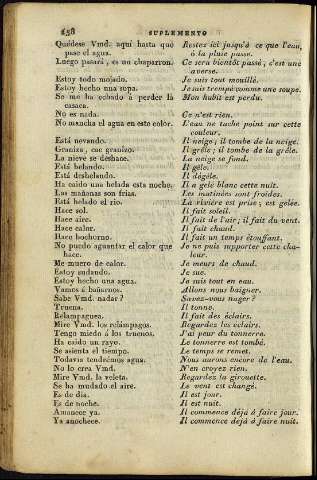 158 SUPLEMENTO
Quédese Vmd. aquí hasta que pase el agua. Restez ici jusqu'à ce que l'eau, ou la pluie passe.
Luego pasará, es un chaparron. Ce sera bientôt passé, c'est une averse.
Estoy todo mojado. Je suis tout mouillé.
Estoy hecho una sopa. Je suis trempé comme une soupe.
Se me ha echado á perder la casaca. Mon habit est perdu.
No es nada. Ce n'est rien.
No mancha el agua en este color. L'eau ne tache point sur cette couleur.
Está nevando. Il neige; il tombe de la neige.
Graniza, cae granizo. Il grêle; il tombe de la grêle.
La nieve se deshace. La neige se fond.
Está helando. Il gèle.
Está deshelando. Il dégèle.
Ha caido una helada esta noche. Il a gelé blanc cette nuit.
Las mañanas son frias. Les matinées sont froides.
Está helado el rio. La rivière est prise; est gelée.
Hace sol. Il fait soleil.
Hace aire. Il fait de l'air; il fait du vent.
Hace calor. Il fait chaud.
Hace bochorno. Il fait un temps étouffant.
No puedo aguantar el calor que hace. Je ne puis supporter cette chaleur.
Me muero de calor. Je meurs de chaud.
Estoy sudando. Je sue.
Estoy hecho un agua. Je suis tout en eau.
Vamos á bañarnos. Allons nous baigner.
Sabe Vmd. nadar? Savez-vous nager?
Truena. Il tonne.
Relampaguea. Il fait des éclairs.
Mire Vmd. los relámpagos. Regardez les éclairs.
Tengo miedo á los truenos. J'ai peur du tonnerre.
Ha caido un rayo. Le tonnerre est tombé.
Se asienta el tiempo. Le temps se remet.
Todavia tendrémos agua. Nous aurons encore de l'eau.
No lo crea Vmd. N'en croyez rien.
Mire Vmd. la veleta. Regardez la girouette.
Se ha mudado el aire. Le vent est changé.
Es de dia. Il est jour.
Es de noche. Il est nuit.
Amanece ya. Il commence déjà à faire jour.
Ya anochece. Il commence déjà à faire nuit.